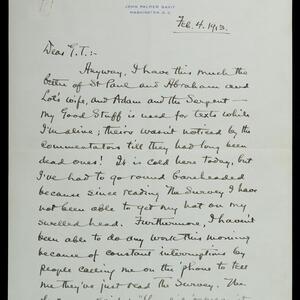 JOHN PALMER GAVIT
WASHINGTON, D.C.
Feb. 4. 1913.
Dear G.T.:-
Anyway, I have this much the
better of St Paul and Abraham and
Lot's wife, and Adam and the Serpent —
my Good Stuff is used for texts while
I'm alive; theirs wasn't noticed by the
commentators till they had long been
dead ones! It is cold here today, but
I've had to go round bareheaded
because since reading the Survey I have
not been able to get my hat on my
swelled head. Furthermore, I haven't
been able to do any work this morning
because of constant interruptions by
people calling me on the 'phone to tell
me they've just read the Survey. The